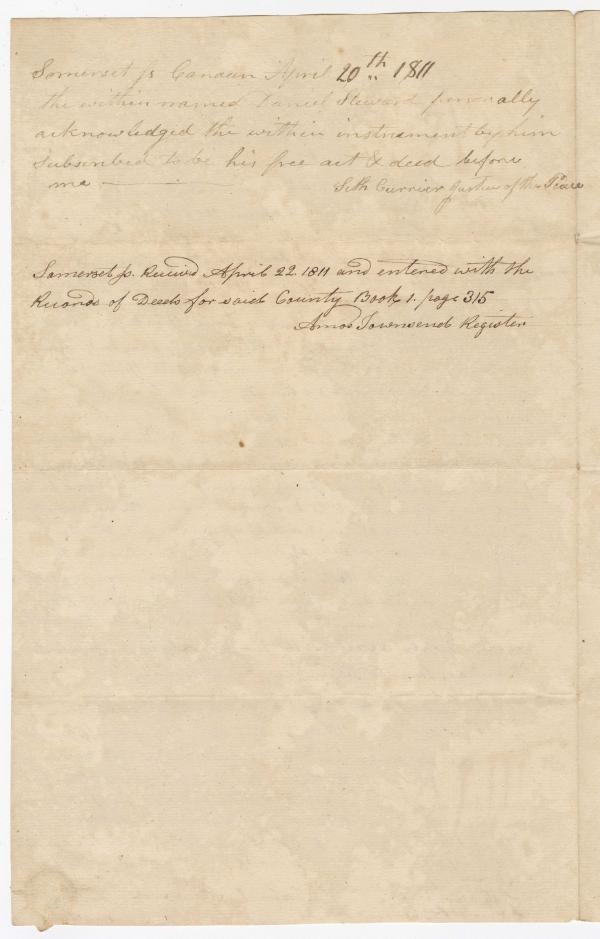 Somerset ss Canaan April 20th 1811
the within named Daniel Steward personally
acknowledged the within instrument by him
subscribed to be his free act & deed before
me
Seth Currier Justice of the Peace
Somerset ss. Received April 22. 1811 and entered with the
Records of Deeds for said County Book 1. page 315
Amos Townsend Register